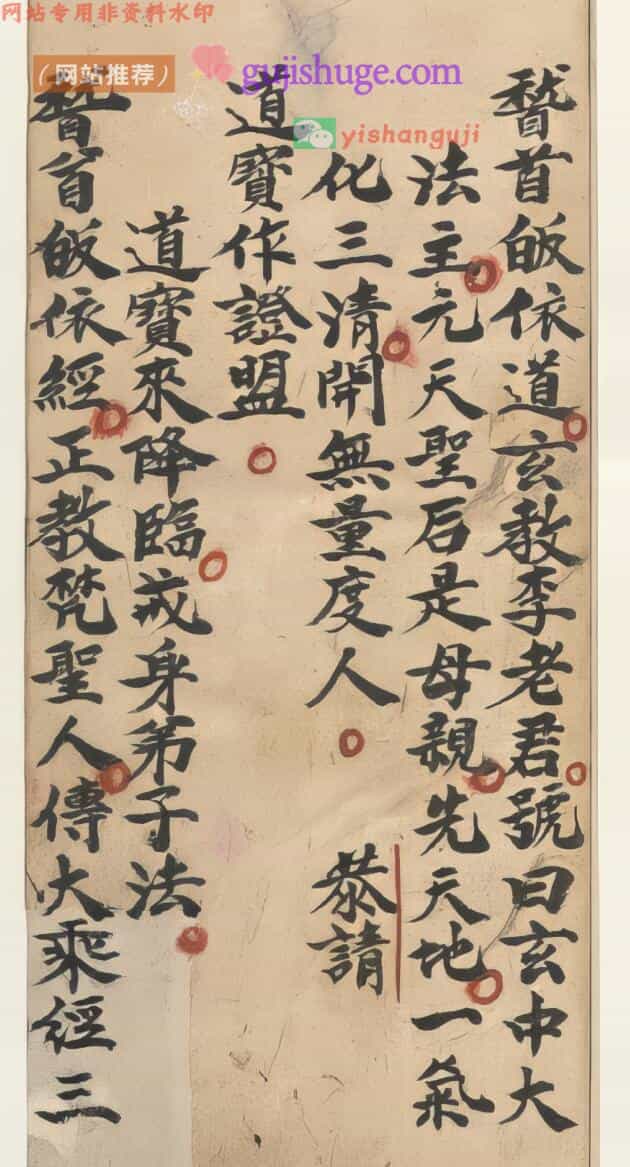 网站专用非资料水印
（网站推荐）
gujishuge.com
yishanguji
稽首皈依道玄教李老君號曰玄中大
法主元天聖后是母親先天地一氣
化三清開無量度人 恭請
道寶作證盟
道寶來降臨戒身弟子法
稽首皈依經正教梵聖人傳大乘經三